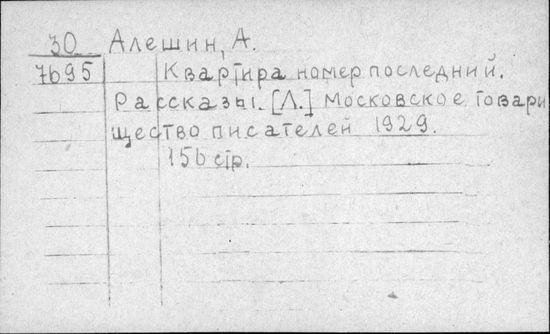 30 Алешин, А.
7695 Квартира номер последний.
Рассказы. [Л.] Московское товари
щество писателей 1929.
156 стр.